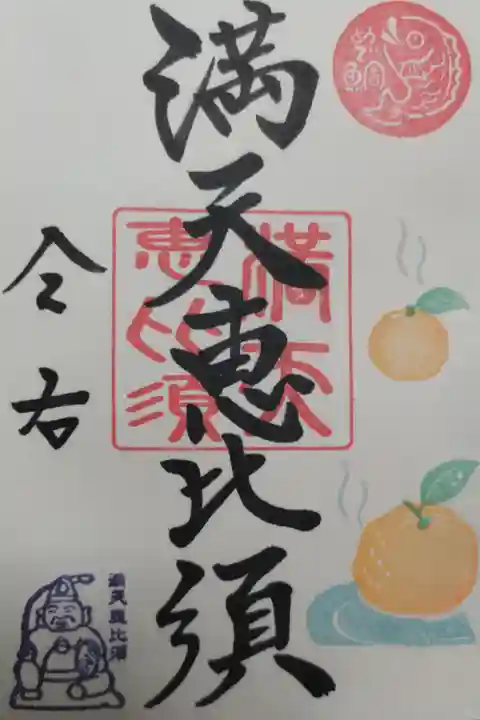 めで鯛
満天恵比須
満天
恵比須
満天恵比須